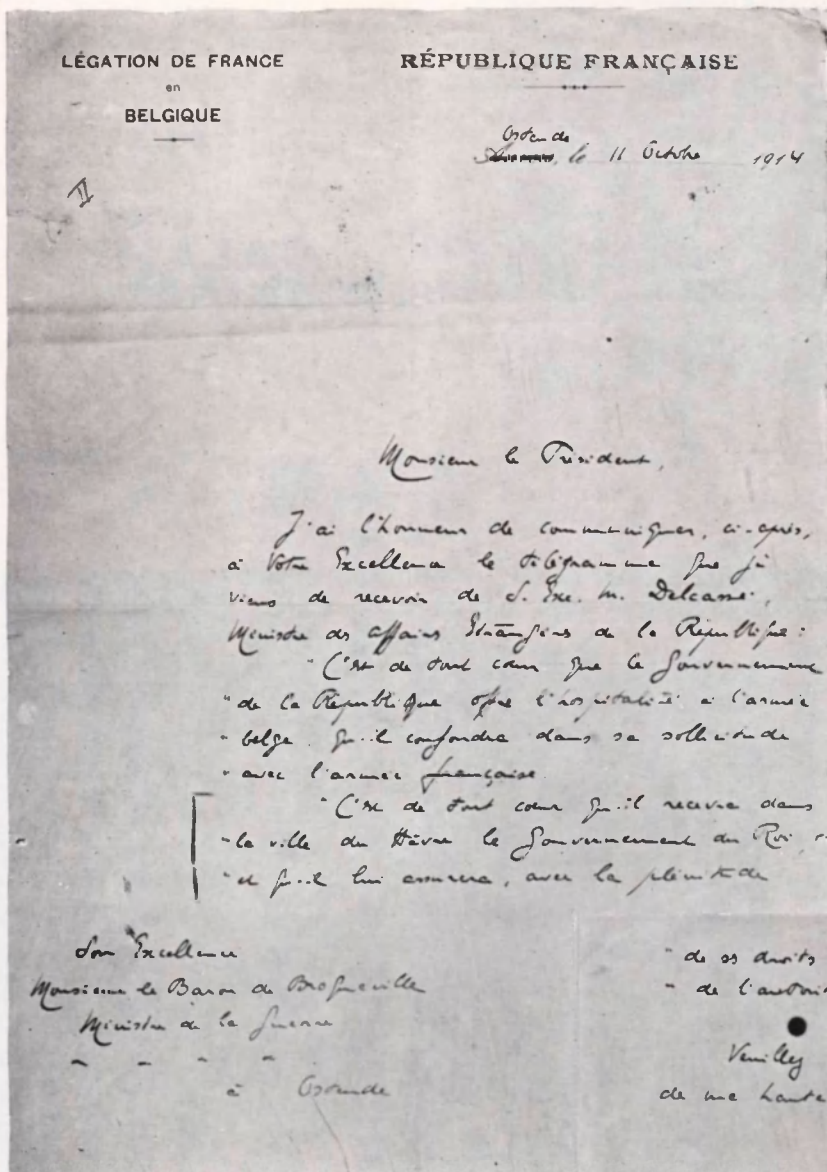 LÉGATION DE FRANCE
en
BELGIQUE
RÉPUBLIQUE FRANÇAISE
Ostende
le 11 Octobre 1914
II
Monsieur le Président,
J'ai l'honneur de communiquer, ci-après,
à Votre Excellence le télégramme que je
viens de recevoir de S. Exc. M. Delcassé,
Ministre des Affaires Etrangères de la République :
"C'est de tout cœur que le Gouvernement
"de la République offre l'hospitalité à l'armée
"belge qu'il confondra dans sa sollicitude
"avec l'armée française.
"C'est de tout cœur qu'il recevra dans
"la ville du Hâvre le Gouvernement du Roi
"et qu'il lui assurera, avec la plénitude
Son Excellence
Monsieur le Baron de Broqueville
Ministre de la Guerre
" " " "
à Ostende
"de ses droits
"de l'autori
Veuillez
de ma haute